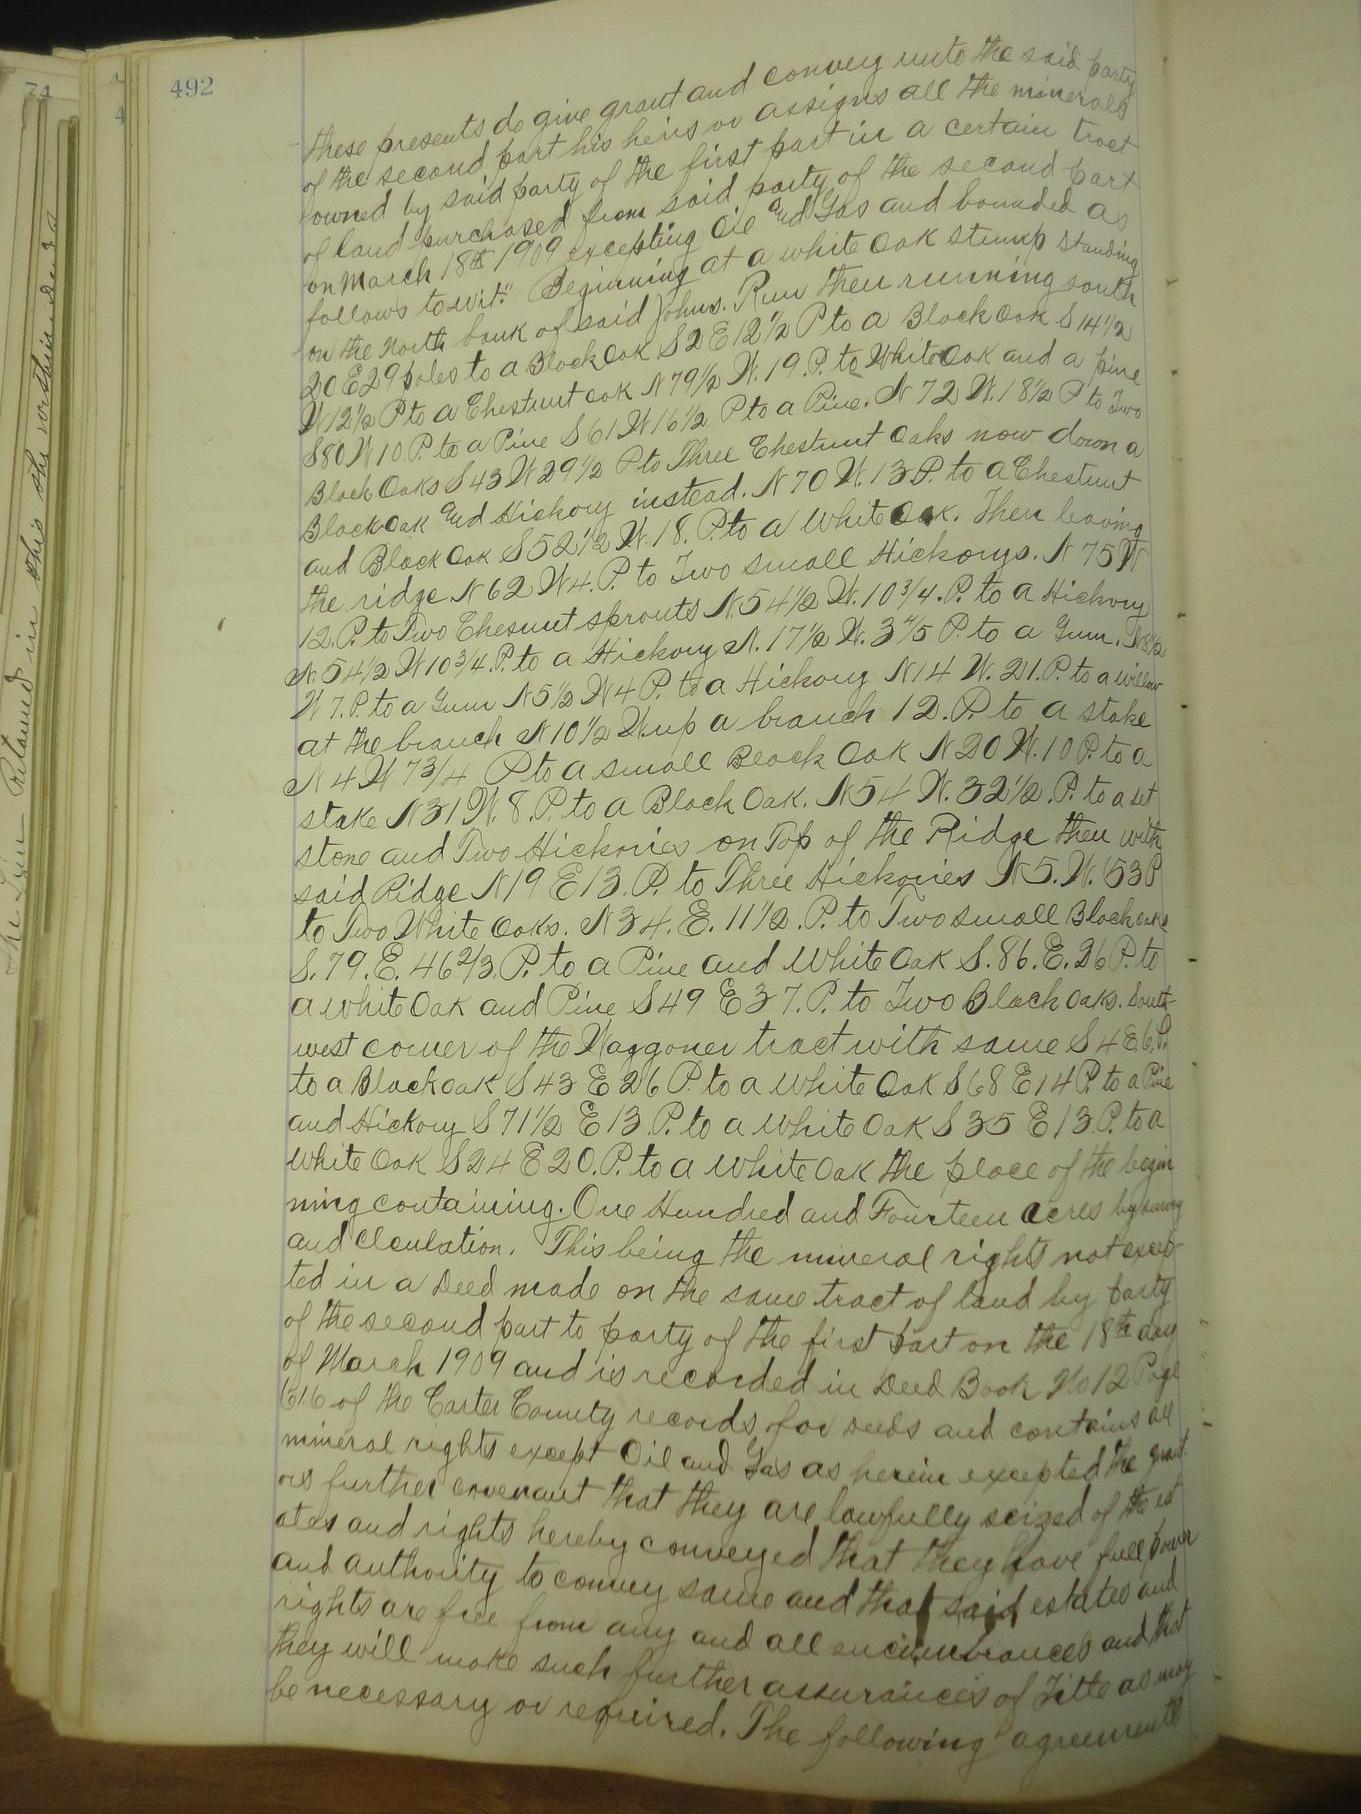 492
these presents do give grant and convey unto the said party
of the second part his heirs or assigns all the minerals
owned by said party of the first part in a certain tract
of land purchased from said party of the second part
on March 18th 1909 excepting Oil and Gas and bounded as
follows towit:" Beginning at a white Oak stump standing
on the North bank of said Johns. Run then running south
20 E 29 poles to a Black Oak S 2 E 12 1/2 P to a Black Oak S 14 1/2
W 12 1/2 P to a Chestnut oak N 79 1/2 W. 19. P. to White Oak and a pine
S 80 W 10 P. to a Pine S 61 W 16 1/2 P to a Pine. N 72 W. 18 1/2 P to Two
Black Oaks S 43 W 29 1/2 P to Three Chestnut Oaks now down a
Black Oak and Hickory instead. N 70 W. 13 P. to a Chestnut
and Black Oak S 52 1/2 W. 18. P. to a White Oak. Then leaving
the ridge N 62 W 4. P. to Two small Hickorys. N 75 W
12. P. to Two Chesnut sprouts N. 54 1/2 W. 10 3/4. P. to a Hickory
N. 54 1/2 W 10 3/4. P. to a Hickory N. 17 1/2 W. 3 4/5 P. to a Gum. N 8 1/2
W 7. P. to a Gum N 5 1/2 W 4 P. to a Hickory N 14 W. 21. P. to a willow
at the branch N 10 1/2 W. up a branch 12. P. to a stake
N 4 W 7 3/4 P to a small Black Oak N 20 W. 10 P. to a
stake N 31 W. 8. P. to a Black Oak. N 54 W. 32 1/2. P. to a set
stone and Two Hickories on Top of the Ridge then with
said Ridge N 19 E 13. P. to Three Hickories N 5. W. 53 P
to Two White Oaks. N 34. E. 11 1/2. P. to Two small Black oaks
S. 79. E. 46 2/3. P. to a Pine and White Oak S. 86. E. 26 P. to
a white Oak and Pine S 49 E 37. P. to Two Black Oaks. South-
west corner of the Waggoner tract with same S 4 E 6. P.
to a Black oak S 43 E 26 P. to a White Oak S 68 E 14 P. to a Pine
and Hickory S 71 1/2 E 13. P. to a White Oak S 35 E 13. P. to a
White Oak S 24 E 20. P. to a White Oak the place of the begin
ning containing. One Hundred and Fourteen acres by survey
and clculation. This being the mineral rights not excep-
ted in a Deed made on the same tract of land by party
of the second part to party of the first part on the 18th day
of March 1909 and is recorded in Deed Book No 12 Page
616 of the Carter County records for deeds and contains all
mineral rights except Oil and Gas as herein excepted the grant
ors further covenant that they are lawfully seized of the est
ates and rights hereby conveyed that they have full power
and authority to convey same and that said estates and
rights are free from any and all encumbrances and that
they will make such further assurances of Title as may
be necessary or required. The following agreements